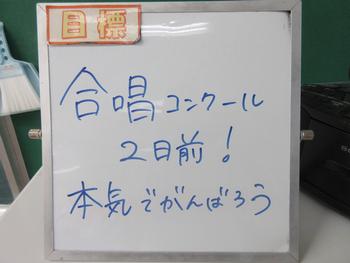 目標
合唱コンクール
2日前!
本気でがんばろう